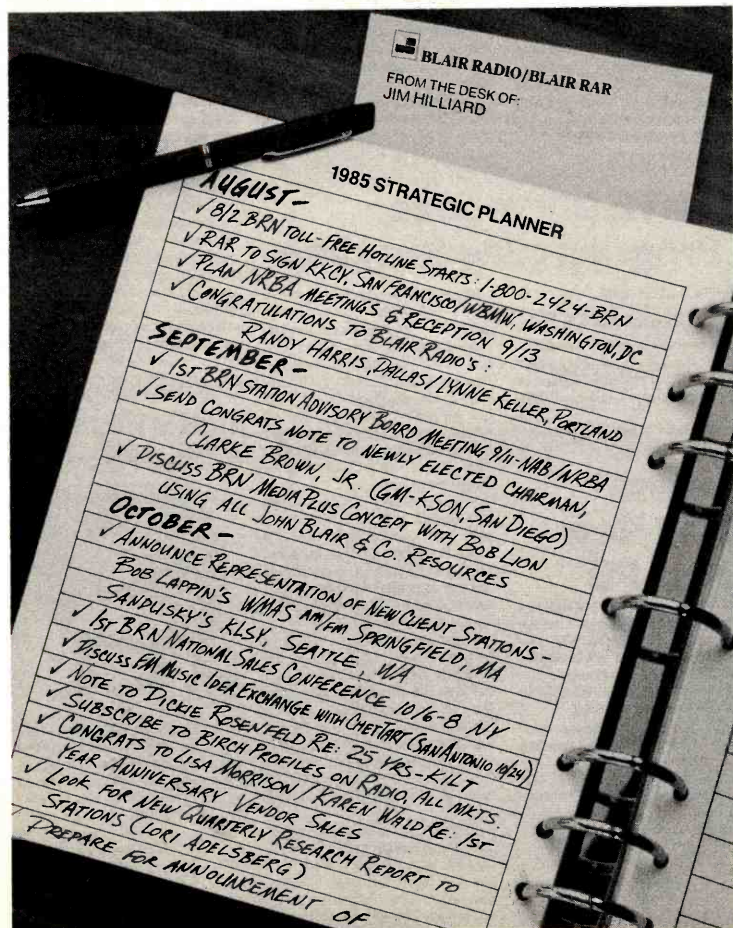 BLAIR RADIO/BLAIR RAR
FROM THE DESK OF:
JIM HILLIARD
1985 STRATEGIC PLANNER
AUGUST-
✓ 8/2 BRN TOLL-FREE HOTLINE STARTS: 1-800-2424-BRN
✓ RAR TO SIGN KKCY, SAN FRANCISCO/WBMW, WASHINGTON, DC
✓ PLAN NRBA MEETINGS & RECEPTION 9/13
✓ CONGRATULATIONS TO BLAIR RADIO'S:
RANDY HARRIS, DALLAS/LYNNE KELLER, PORTLAND
SEPTEMBER-
✓ 1ST BRN STATION ADVISORY BOARD MEETING 9/11-NAB/NRBA
✓ SEND CONGRATS NOTE TO NEWLY ELECTED CHAIRMAN,
CLARKE BROWN, JR. (GM-KSON, SAN DIEGO)
✓ DISCUSS BRN MEDIA PLUS CONCEPT WITH BOB LION
USING ALL JOHN BLAIR & CO. RESOURCES
OCTOBER-
✓ ANNOUNCE REPRESENTATION OF NEW CLIENT STATIONS-
BOB LAPPIN'S WMAS AM/FM SPRINGFIELD, MA
SANDUSKY'S KLSY, SEATTLE, WA
✓ 1ST BRN NATIONAL SALES CONFERENCE 10/6-8 NY
✓ DISCUSS FM MUSIC IDEA EXCHANGE WITH CHET TART (SAN ANTONIO 10/24)
✓ NOTE TO DICKIE ROSENFELD RE: 25 YRS-KILT
✓ SUBSCRIBE TO BIRCH PROFILES ON RADIO, ALL MKTS.
✓ CONGRATS TO LISA MORRISON/KAREN WALD RE: 1ST
YEAR ANNIVERSARY VENDOR SALES
✓ LOOK FOR NEW QUARTERLY RESEARCH REPORT TO
STATIONS (LORI ADELSBERG)
✓ PREPARE FOR ANNOUNCEMENT OF